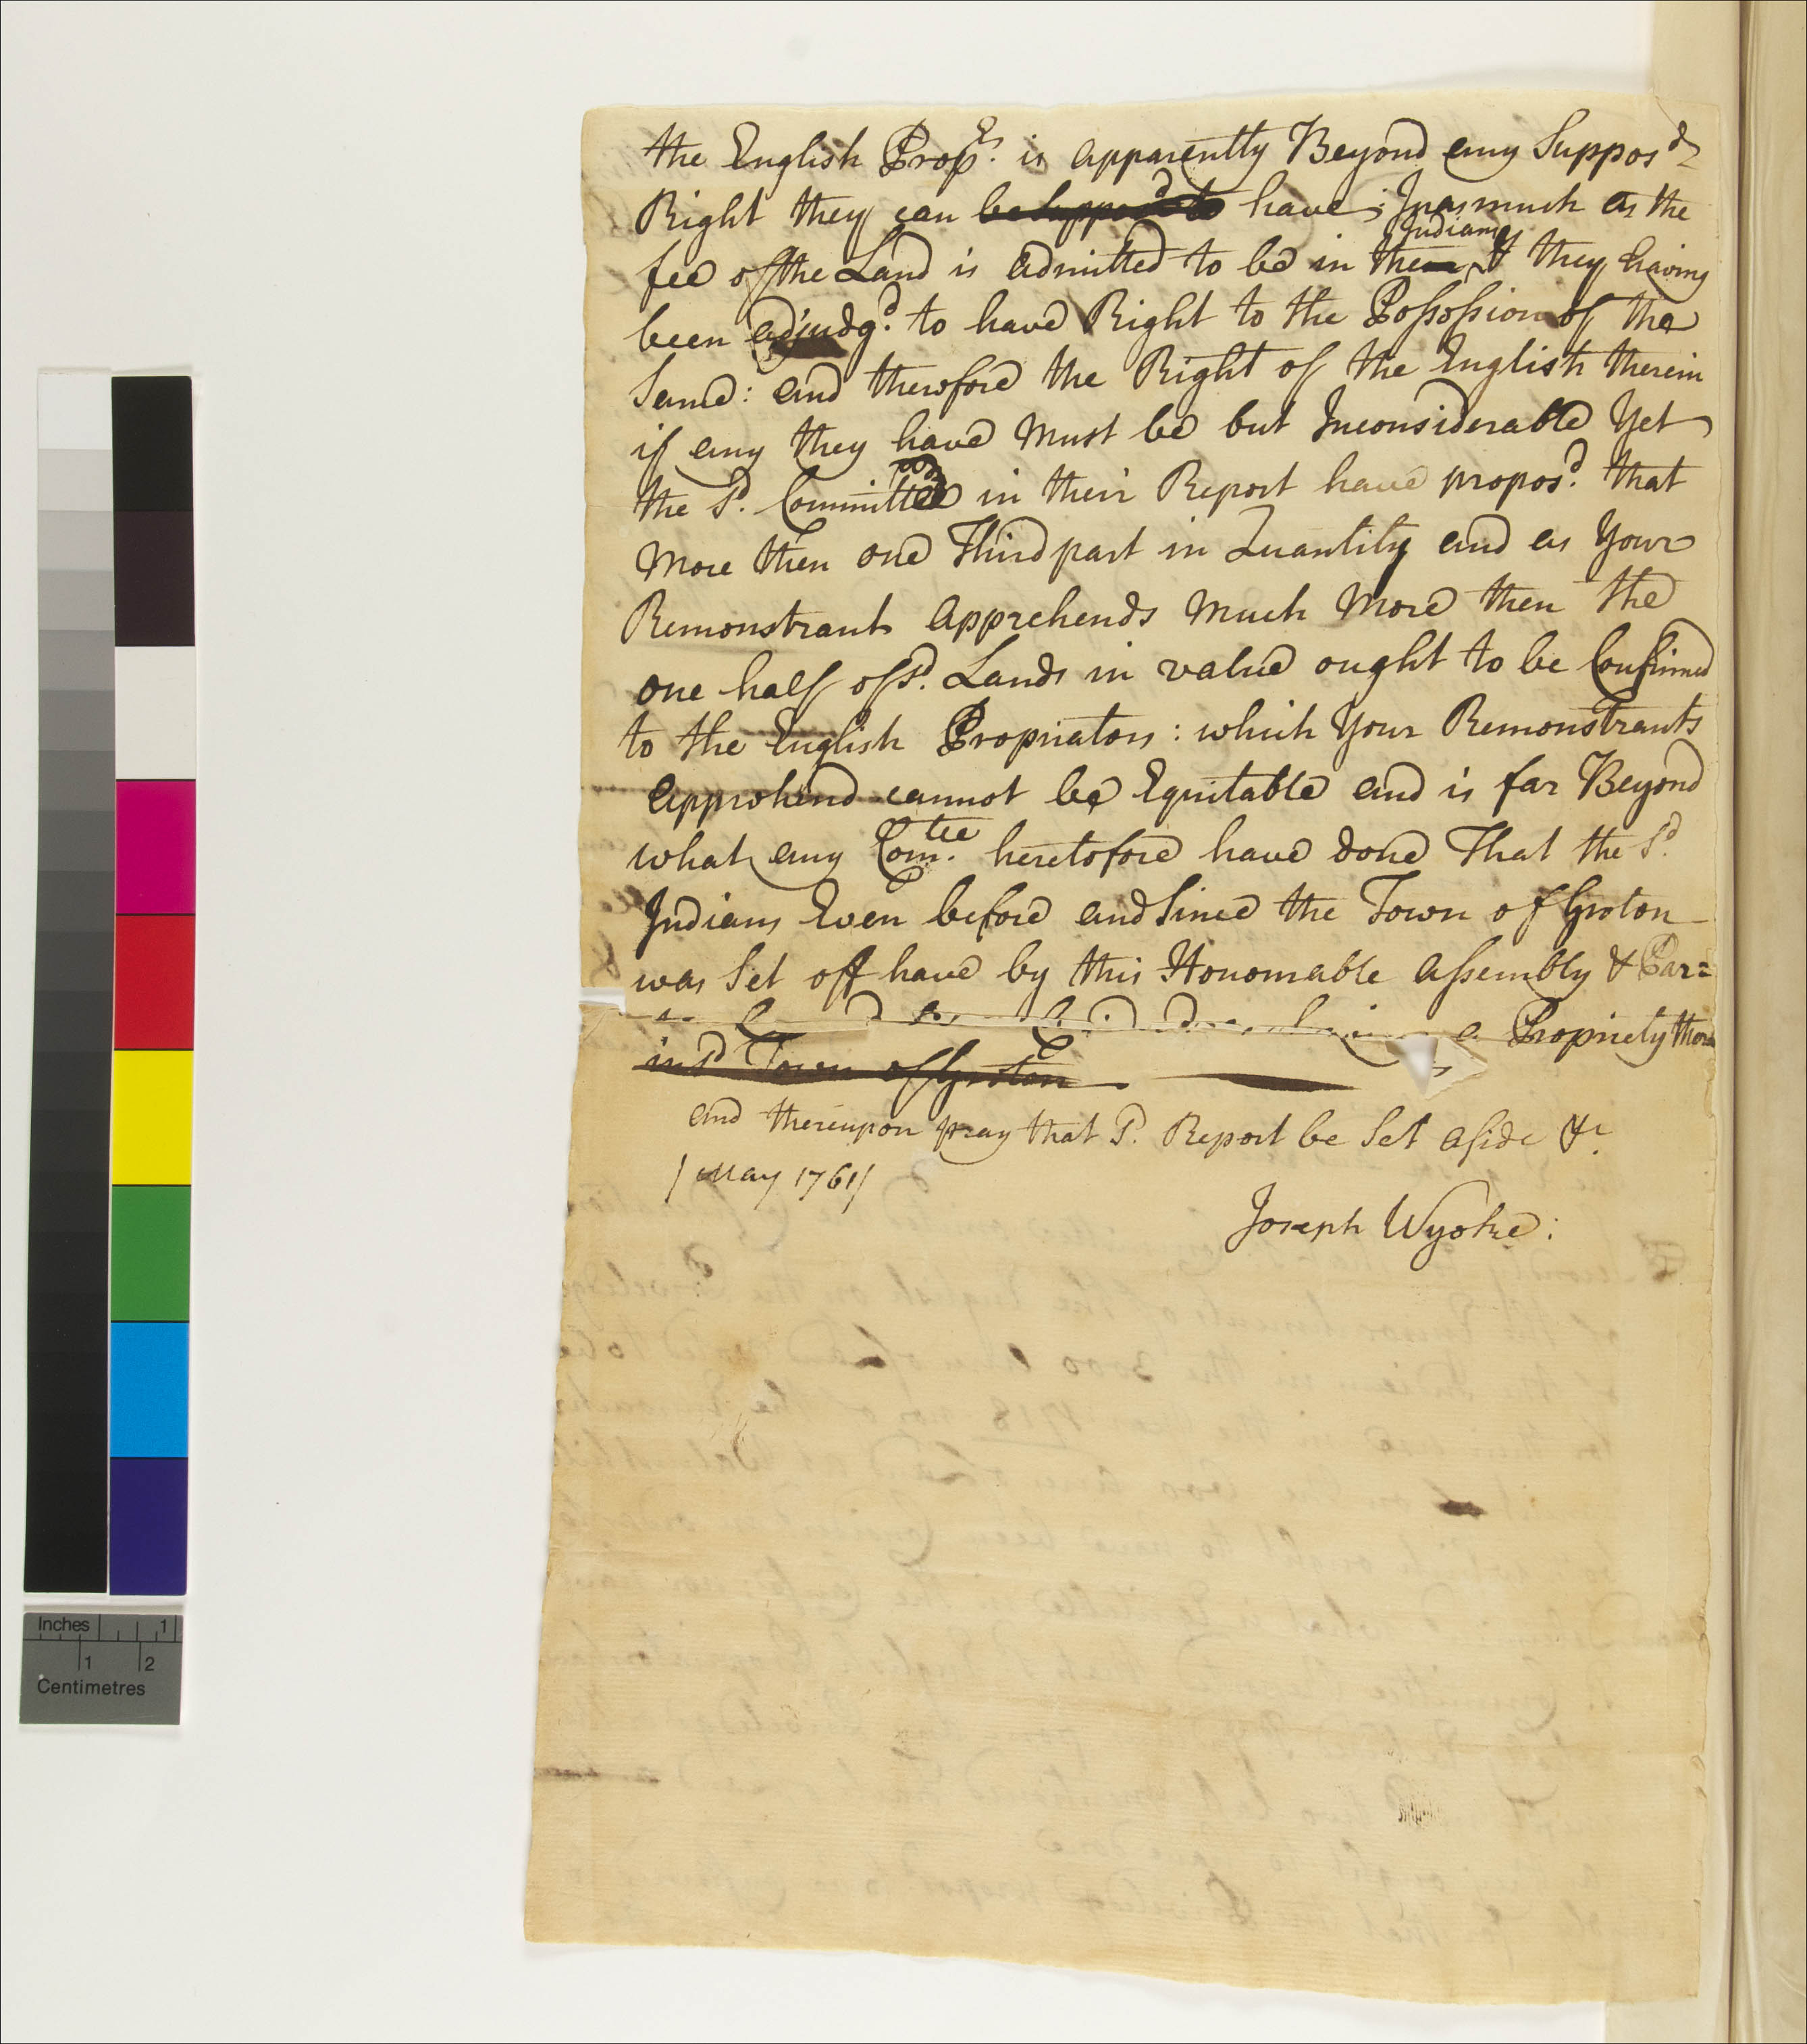 the English Prop.rs is apparently Beyond any Suppos.d
Right they can be Suppos.d to have; Inasmuch as the
fee of the Land is admitted to be in the Indians & they having
been adjudg.d to have Right to the Possossion of the
Same: and therefore the Right of the English therein
if any they have must be but Inconsiderable Yet
the s.d Committee in their Report have propos.d that
More then one Third part in Quantity and as Your
Remonstrants apprehends much More then the
one half of s.d Lands in value ought to be Confirmed
to the English Propriators: which Your Remonstrants
apprehend cannot be Equitable and is far Beyond
what any Com.tee heretofore have done That the s.d
Indians Even before and Since the Town of Groton
was Set off have by this Honourable Assembly & Par=
a Propriety
in s.d Town of Groton
and thereupon pray that s.d Report be Set aside &c.
/ May 1761/
Joseph Wyoke:
Inches 1
1 2
Centimetres